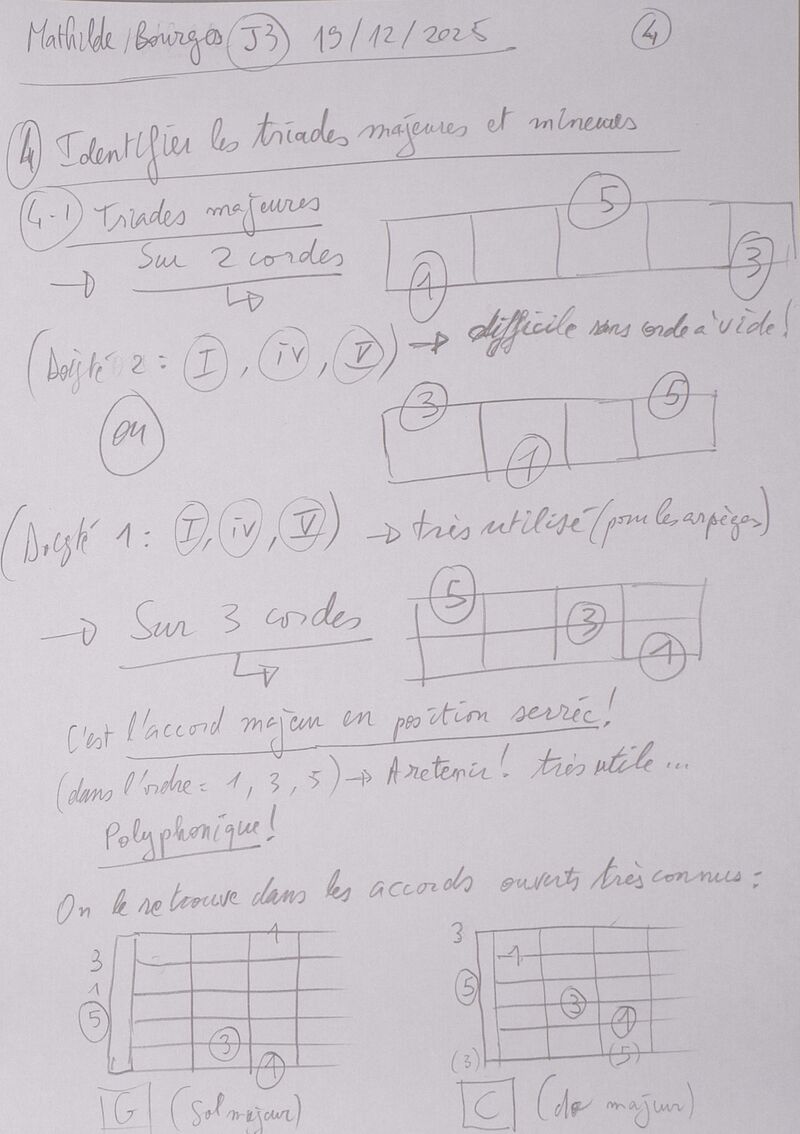 Mathilde Bourges J3 19/12/2025 4
4 Identifier les triades majeures et mineures
4-1 Triades majeures
→ Sur 2 cordes
5
1 3
(Doigté 2 : I, iv, V) → difficile sans corde à vide!
ou
3 5
1
(Doigté 1 : I, iv, V) → très utilisé (pour les arpèges)
→ Sur 3 cordes
5
3
1
C'est l'accord majeur en position serrée!
(dans l'ordre = 1, 3, 5) → A retenir! très utile...
Polyphonique!
On le retrouve dans les accords ouverts très connus :
1
3
1
5
3
1
G (Sol majeur)
3
1
5
3
1
(3) (5)
C (do majeur)